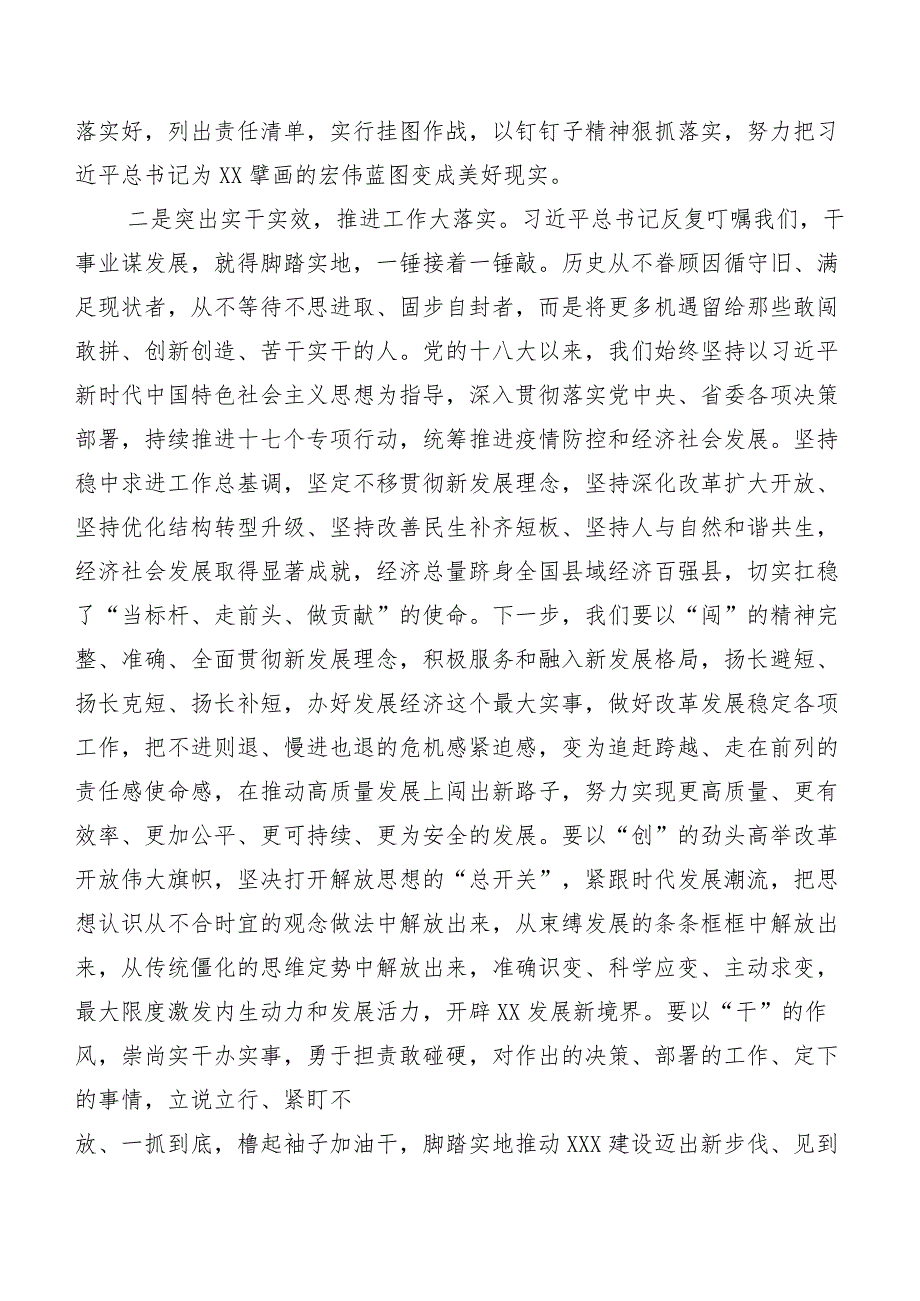 落实好，列出责任清单，实行挂图作战，以钉钉子精神狠抓落实，努力把习
近平总书记为 XX 擘画的宏伟蓝图变成美好现实。
二是突出实干实效，推进工作大落实。习近平总书记反复叮嘱我们，干
事业谋发展，就得脚踏实地，一锤接着一锤敲。历史从不眷顾因循守旧、满
足现状者，从不等待不思进取、固步自封者，而是将更多机遇留给那些敢闯
敢拼、创新创造、苦干实干的人。党的十八大以来，我们始终坚持以习近平
新时代中国特色社会主义思想为指导，深入贯彻落实党中央、省委各项决策
部署，持续推进十七个专项行动，统筹推进疫情防控和经济社会发展。坚持
稳中求进工作总基调，坚定不移贯彻新发展理念，坚持深化改革扩大开放、
坚持优化结构转型升级、坚持改善民生补齐短板、坚持人与自然和谐共生，
经济社会发展取得显著成就，经济总量跻身全国县域经济百强县，切实扛稳
了“当标杆、走前头、做贡献”的使命。下一步，我们要以“闯”的精神完
整、准确、全面贯彻新发展理念，积极服务和融入新发展格局，扬长避短、
扬长克短、扬长补短，办好发展经济这个最大实事，做好改革发展稳定各项
工作，把不进则退、慢进也退的危机感紧迫感，变为追赶跨越、走在前列的
责任感使命感，在推动高质量发展上闯出新路子，努力实现更高质量、更有
效率、更加公平、更可持续、更为安全的发展。要以“创”的劲头高举改革
开放伟大旗帜，坚决打开解放思想的“总开关”，紧跟时代发展潮流，把思
想认识从不合时宜的观念做法中解放出来，从束缚发展的条条框框中解放出
来，从传统僵化的思维定势中解放出来，准确识变、科学应变、主动求变，
最大限度激发内生动力和发展活力，开辟 XX 发展新境界。要以“干”的作
风，崇尚实干办实事，勇于担责敢碰硬，对作出的决策、部署的工作、定下
的事情，立说立行、紧盯不
放、一抓到底，橹起袖子加油干，脚踏实地推动 XXX 建设迈出新步伐、见到